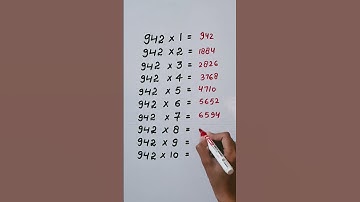 942 x 1 = 942
942 x 2 = 1884
942 x 3 = 2826
942 x 4 = 3768
942 x 5 = 4710
942 x 6 = 5652
942 x 7 = 6594
942 x 8 =
942 x 9 =
942 x 10 =